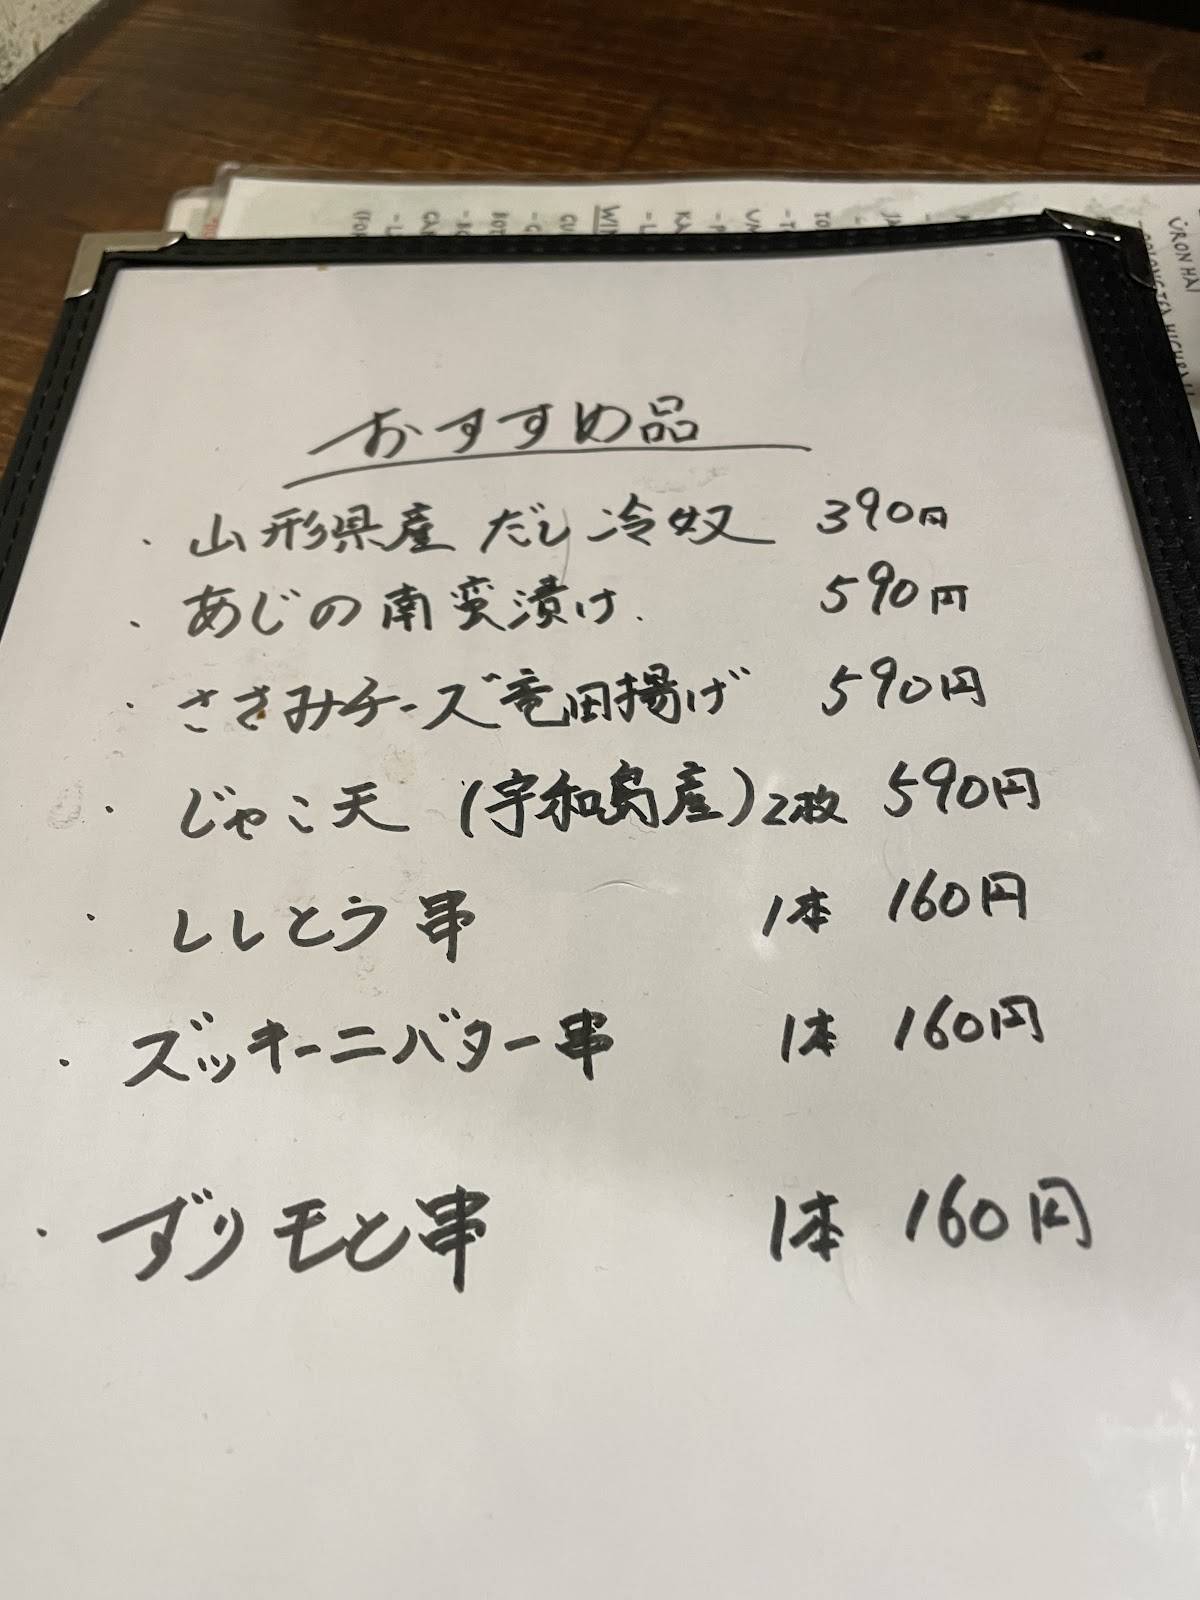 おすすめ品
・山形県産 だし冷奴 390円
・あじの南蛮漬け 590円
・ささみチーズ竜田揚げ 590円
・じゃこ天 (宇和島産) 2枚 590円
・ししとう串 1本 160円
・ズッキーニバター串 1本 160円
・ずりモと串 1本 160円
ÜRONHAI